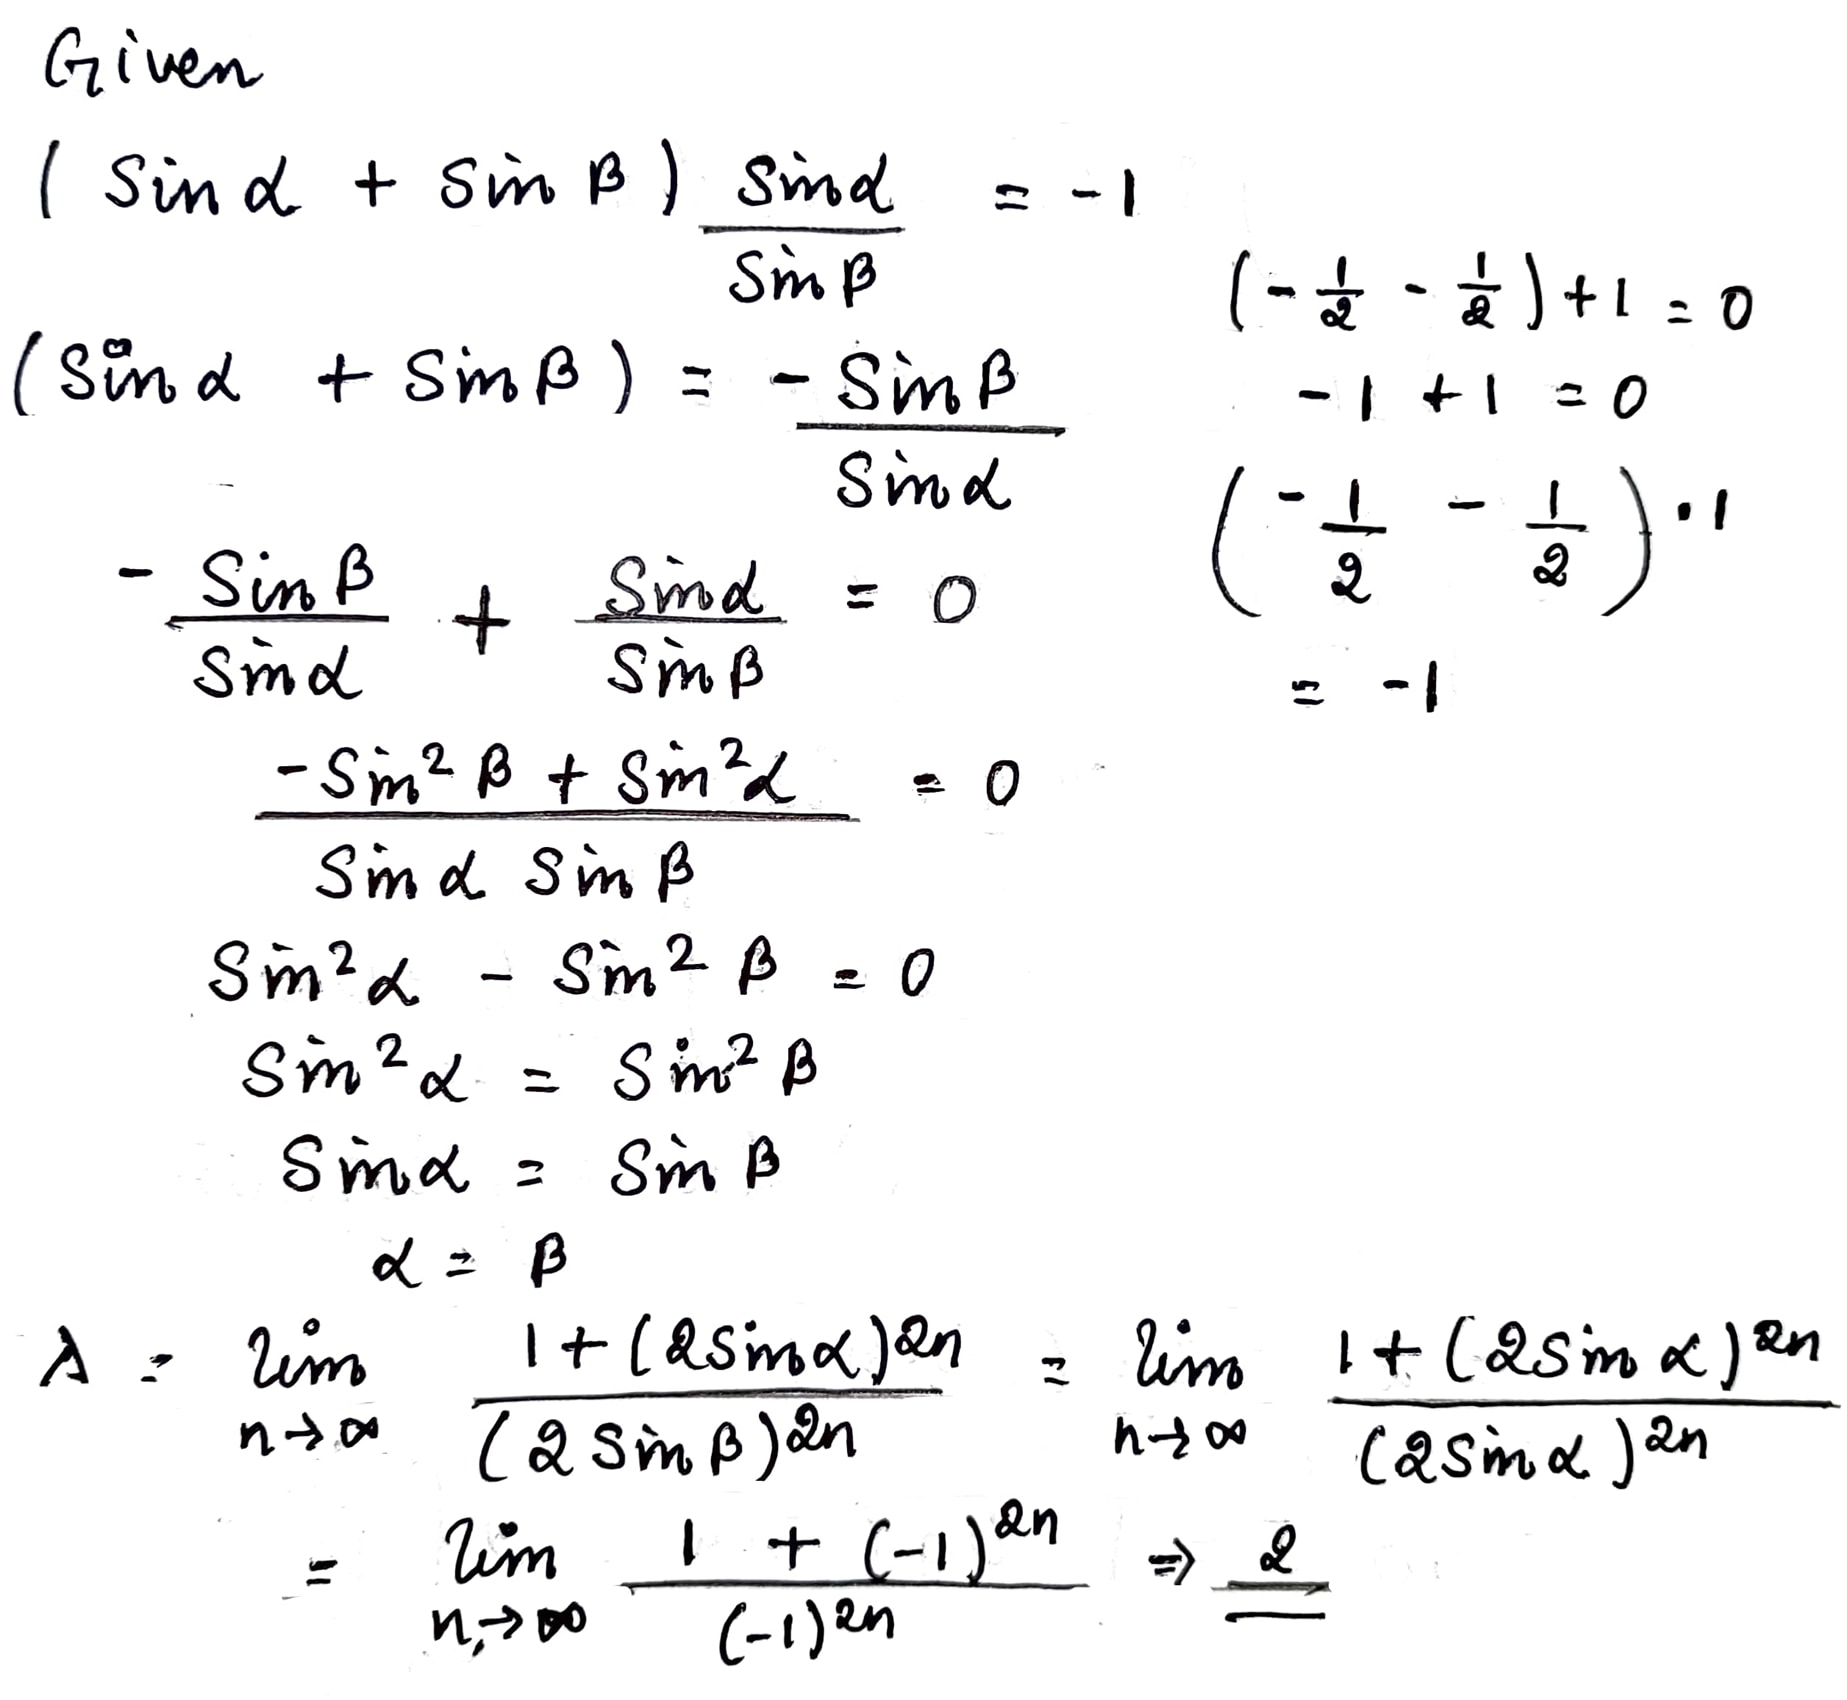 Given
( Sin α + Sin β ) Sin α / Sin β = -1
(Sin α + Sin β ) = - Sin β / Sin α
- Sin β / Sin α + Sin α / Sin β = 0
-Sin² β + Sin² α / Sin α Sin β = 0
Sin² α - Sin² β = 0
Sin² α = Sin² β
Sin α = Sin β
α = β
λ = lim n→∞ 1 + (2 Sin α)2n / (2 Sin β)2n = lim n→∞ 1 + (2 Sin α)2n / (2 Sin α)2n
= lim n→∞ 1 + (-1)2n / (-1)2n ⇒ 2
(- 1/2 - 1/2 ) + 1 = 0
-1 + 1 = 0
( - 1/2 - 1/2 ) · 1
= -1